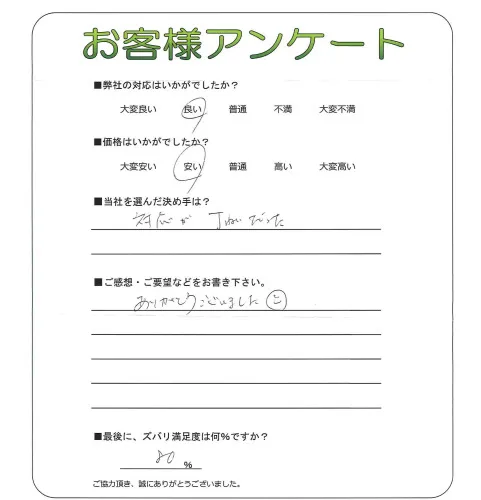 お客様アンケート
■弊社の対応はいかがでしたか？
大変良い 良い 普通 不満 大変不満
■価格はいかがでしたか？
大変安い 安い 普通 高い 大変高い
■当社を選んだ決め手は？
対応が丁ねいだった
■ご感想・ご要望などをお書き下さい。
ありがとうございました
■最後に、ズバリ満足度は何％ですか？
80 %
ご協力頂き、誠にありがとうございました。